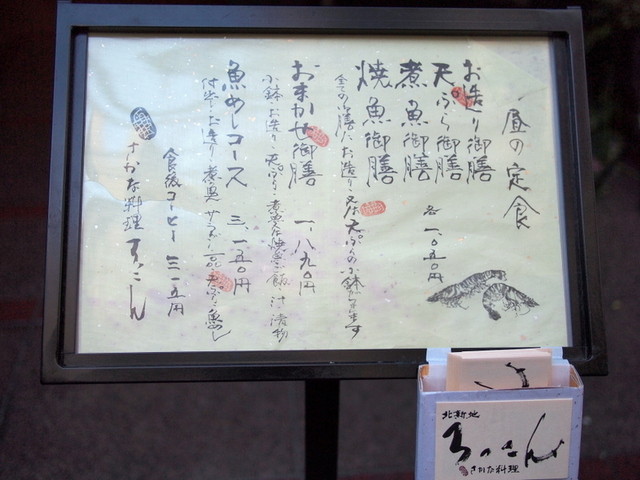 昼の定食
お造り御膳
天ぷら御膳
煮魚御膳
焼魚御膳
各一、〇五〇円
全ての御膳にお造り又は天ぷらの小鉢が付きます
おまかせ御膳 一、八九〇円
小鉢・お造り・天ぷら・煮魚又は焼魚・ご飯・汁・漬物
魚めしコース 三、一五〇円
付出し・お造り・煮魚
食後コーヒー 三一五円
さかな料理
北新地
さかな料理